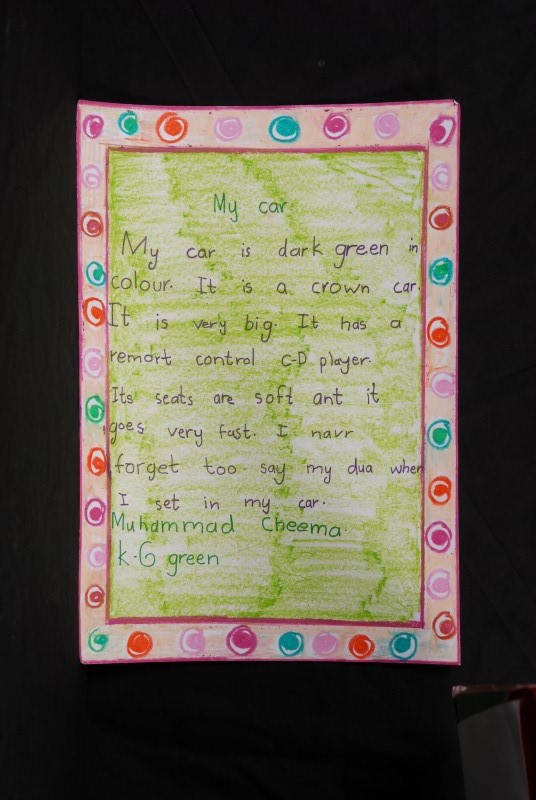 My car
My car is dark green in
colour. It is a crown car.
It is very big. It has a
remort control C-D player.
Its seats are soft ant it
goes very fast. I navr
forget too say my dua when
I set in my car.
Muhammad Cheema
K-G green